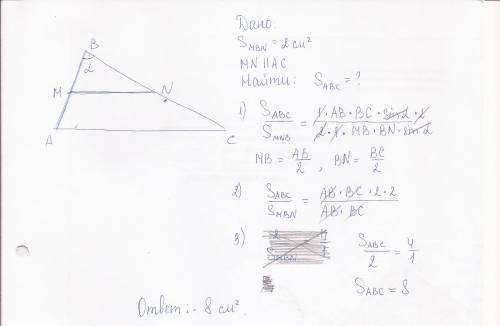 B
α
M
N
A
C
Дано:
S_MBN = 2 см²
MN || AC
Найти: S_ABC = ?
1) S_ABC / S_MNB = 1·AB·BC·sin α·2 / 2·1·MB·BN·sin α
MB = AB/2, BN = BC/2
2) S_ABC / S_MBN = AB·BC·2·2 / AB·BC
3) S_ABC / 2 = 4/1
S_ABC = 8
Ответ:- 8 см².